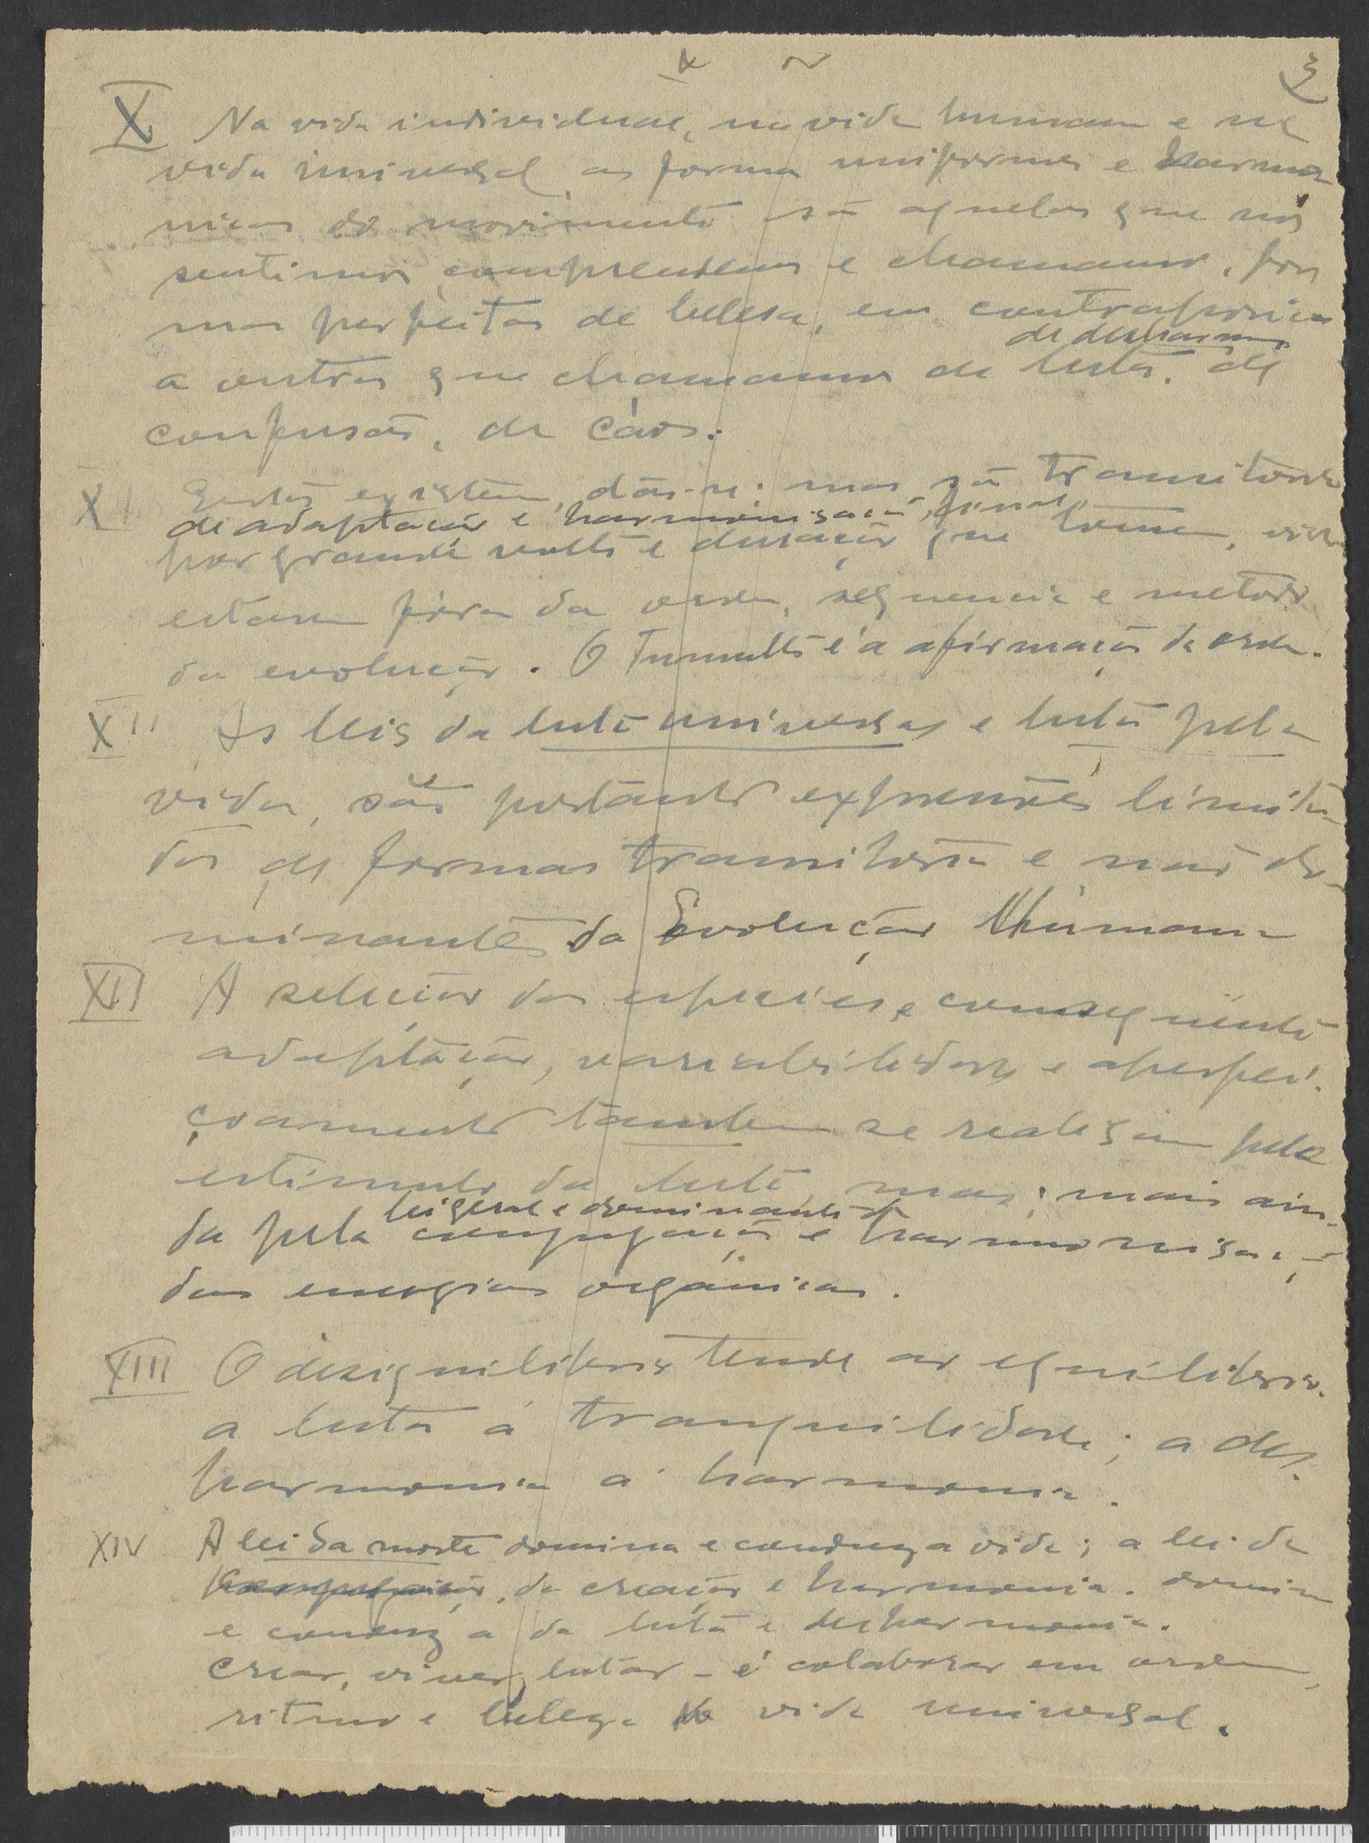 3
X Na vida individual, na vida humana e na
vida universal, as formas uniformes e harmo
nicas do movimento são aquelas que nós
sentimos, comprendemos e chamamos, for
mas perfeitas de belesa, em contraposição
de desharmonia
a outras que chamamos de luta, de
confusão, de cáos.
XI Estas existem, dão-se; mas são transitorias
de adaptação e harmonisação final,
por grande vulto e duração que tomem, visto
estarem fóra da ordem, sequencia e metodo
da evolução. O tumulto é a afirmação da ordem.
XII As leis da luta universal e luta pela
vida, são portanto expressões limita
das de formas transitorias e não do
minantes da Evolução Humana
XII A selecção das especies, e consequente
adaptação, variabilidade e aperfei
çoamento tambem se realisam pelo
estimulo da luta, mas; mais ain-
lei geral e dominante da
da pela conjugação e harmonisação
das energias orgánicas.
XIII O desiquilibrio tende ao equilibrio,
a luta á tranquilidade; a des-
harmonia á harmonia.
XIV A lei da morte domina e conduz a vida; a lei da
da creação e harmonia, domina
e conduz a da luta e desharmonia.
Crear, viver, lutar - é colaborar em ordem,
ritmo e beleza na vida universal.